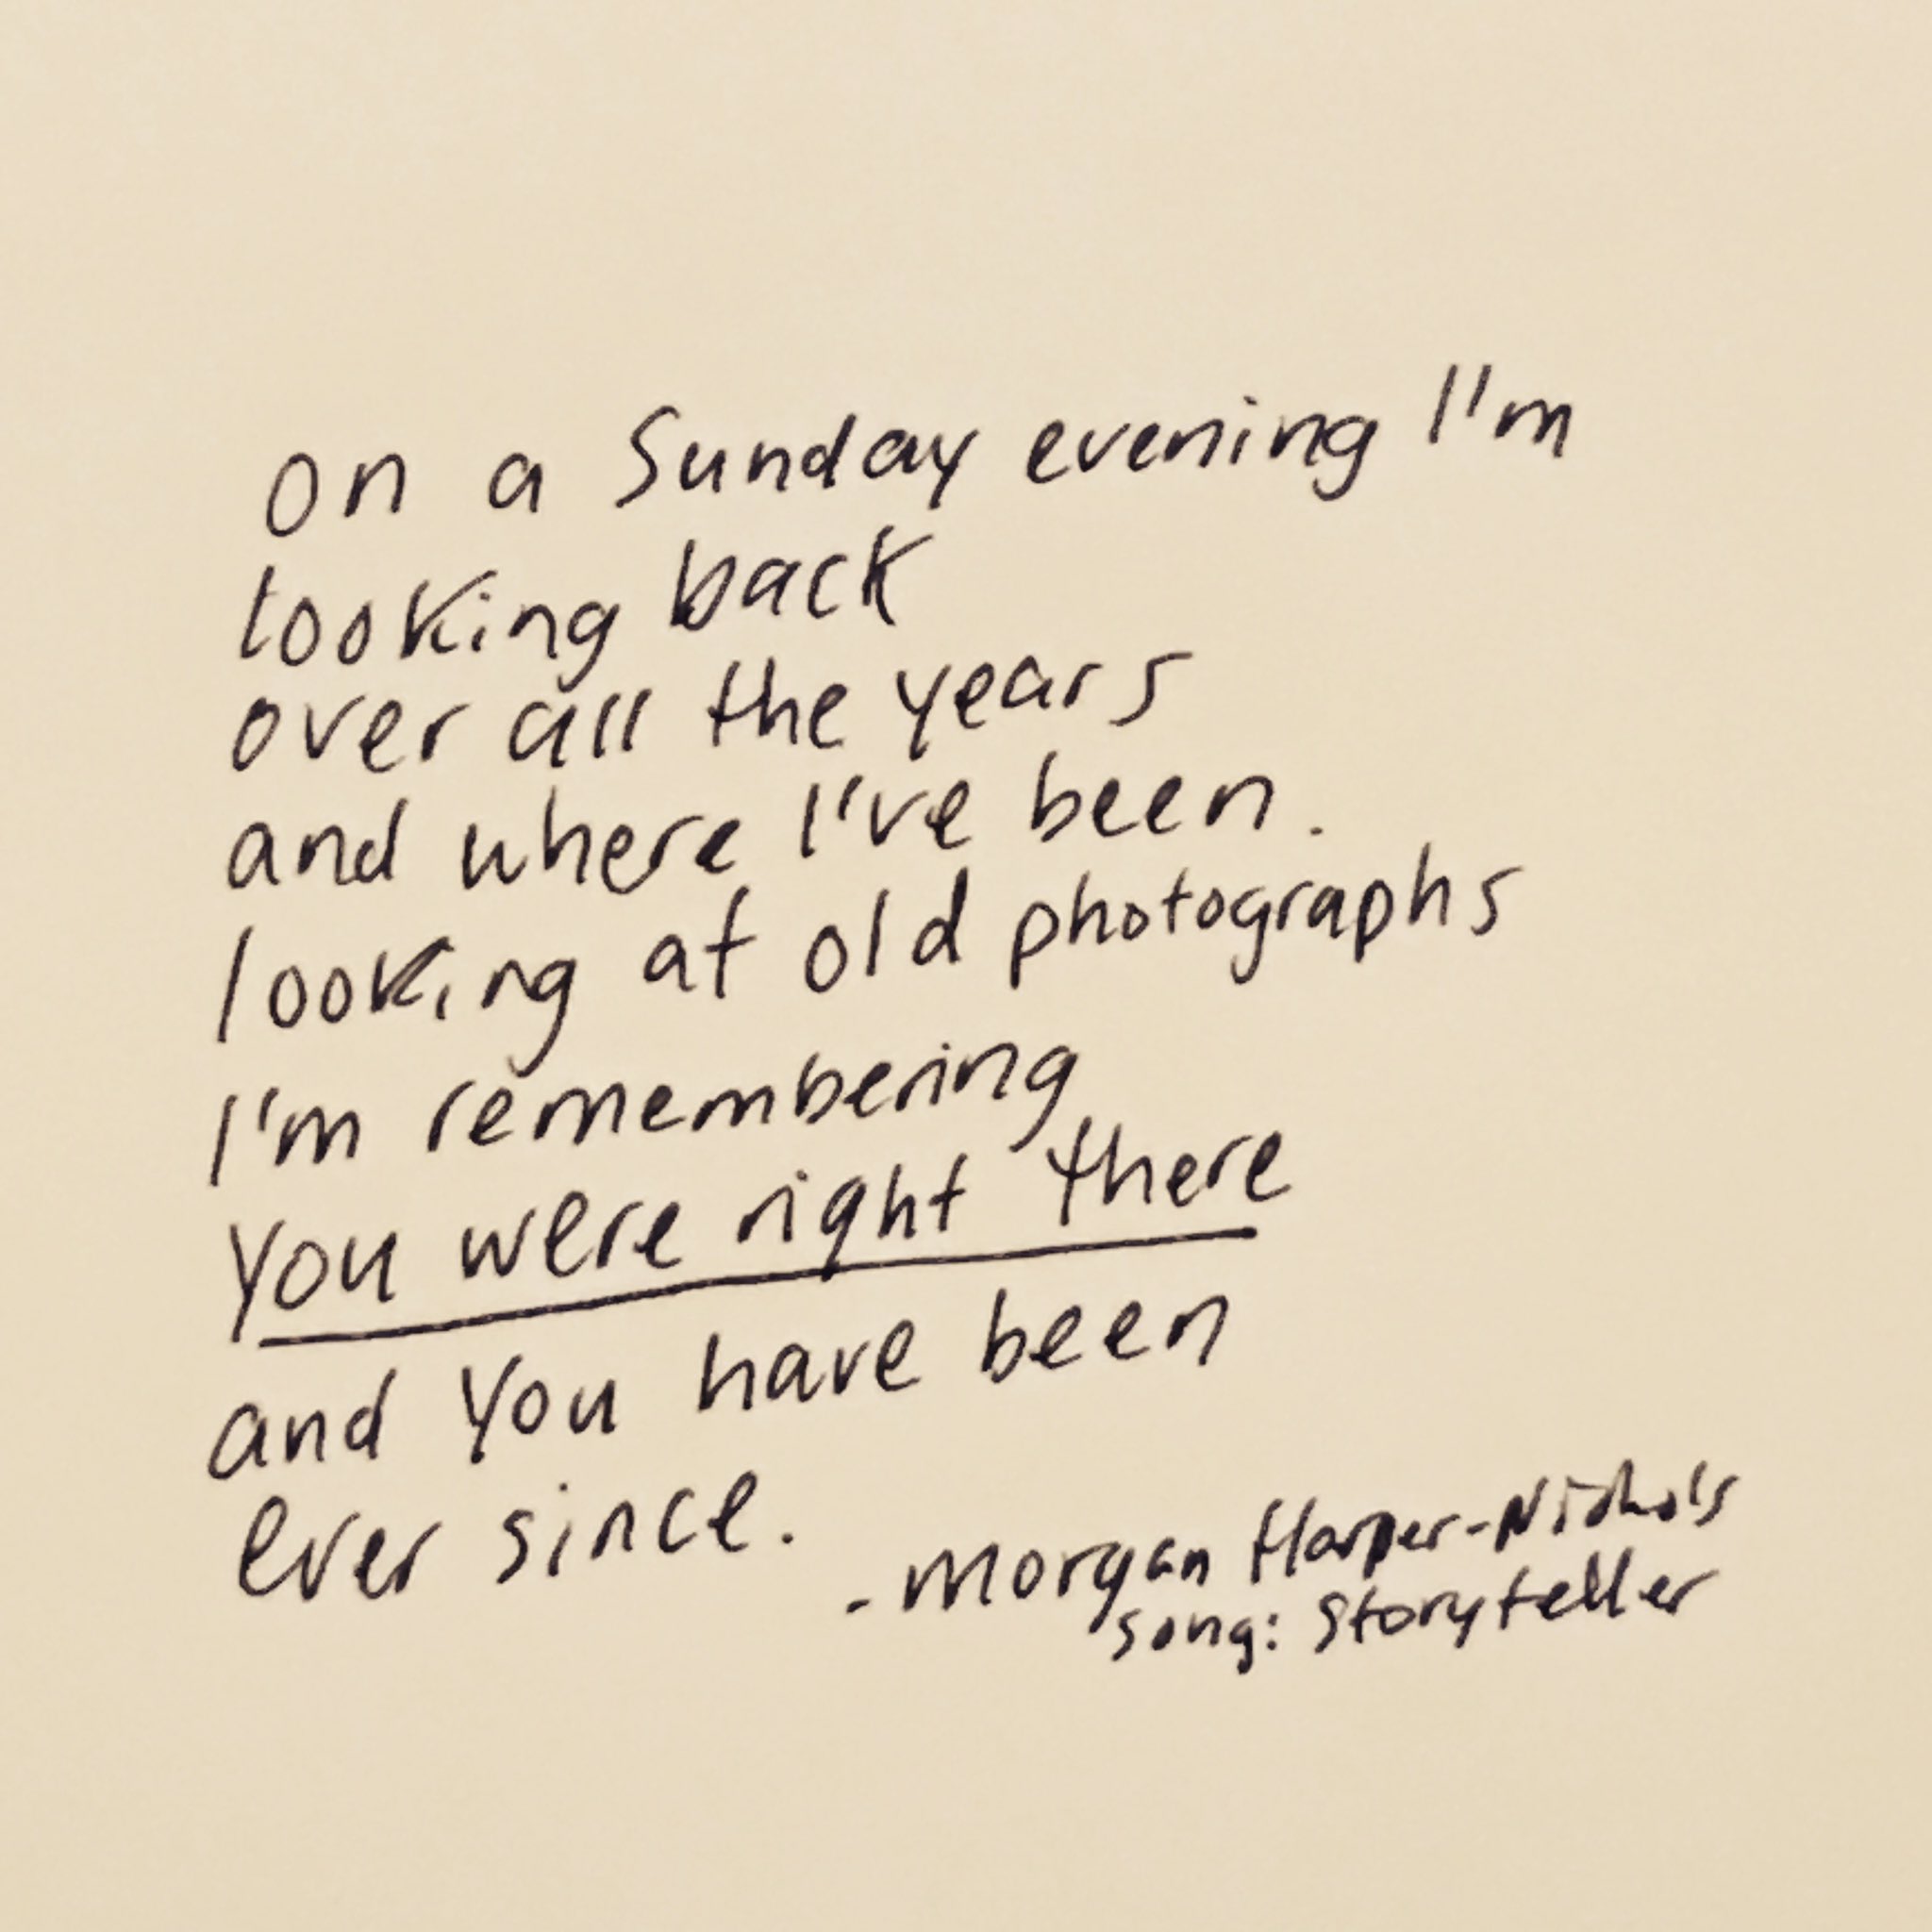 on a Sunday evening I'm
looking back
over all the years
and where I've been.
looking at old photographs
I'm remembering
you were right there
and you have been
ever since.
- Morgan Harper-Nichols
song: Storyteller